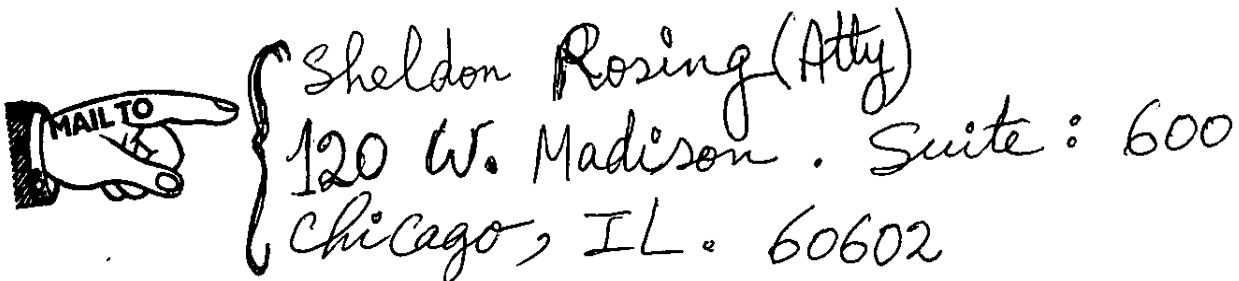 MAIL TO
Sheldon Rosing (Atty)
120 W. Madison. Suite: 600
Chicago, IL. 60602